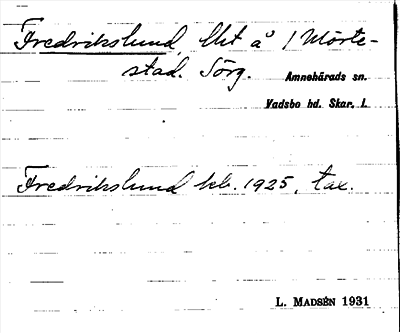 Fredrikslund, lht å 1 Mörte-
stad. Sörg. Amnehärads sn.
Vadsbo hd. Skar. l.
Fredrikslund kb. 1925, tax.
L. Madsén 1931